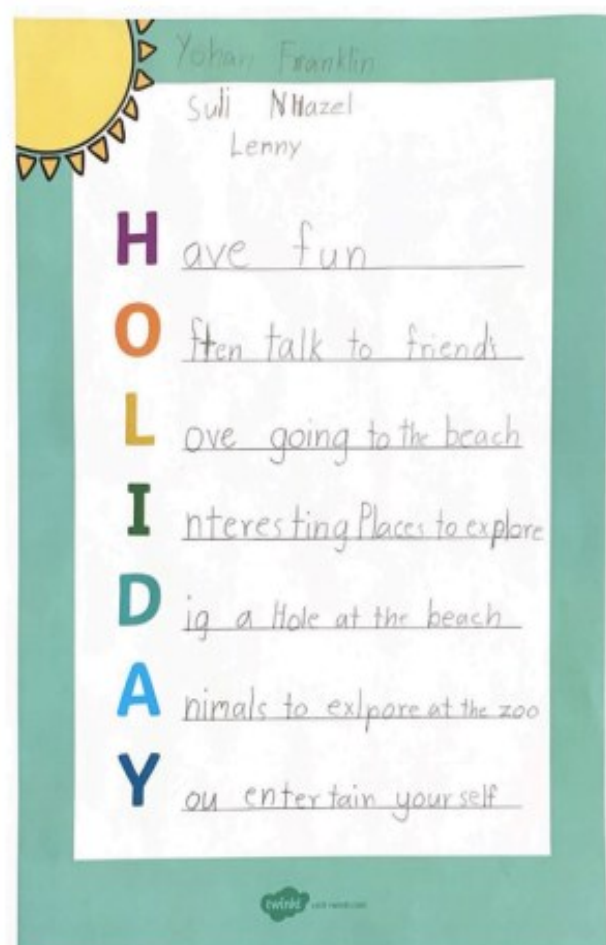 Yohan Franklin
Suli NHazel
Lenny
Have fun
Often talk to friends
Love going to the beach
Interesting Places to explore
Dig a Hole at the beach
Animals to exlpore at the zoo
You entertain yourself
twinkl